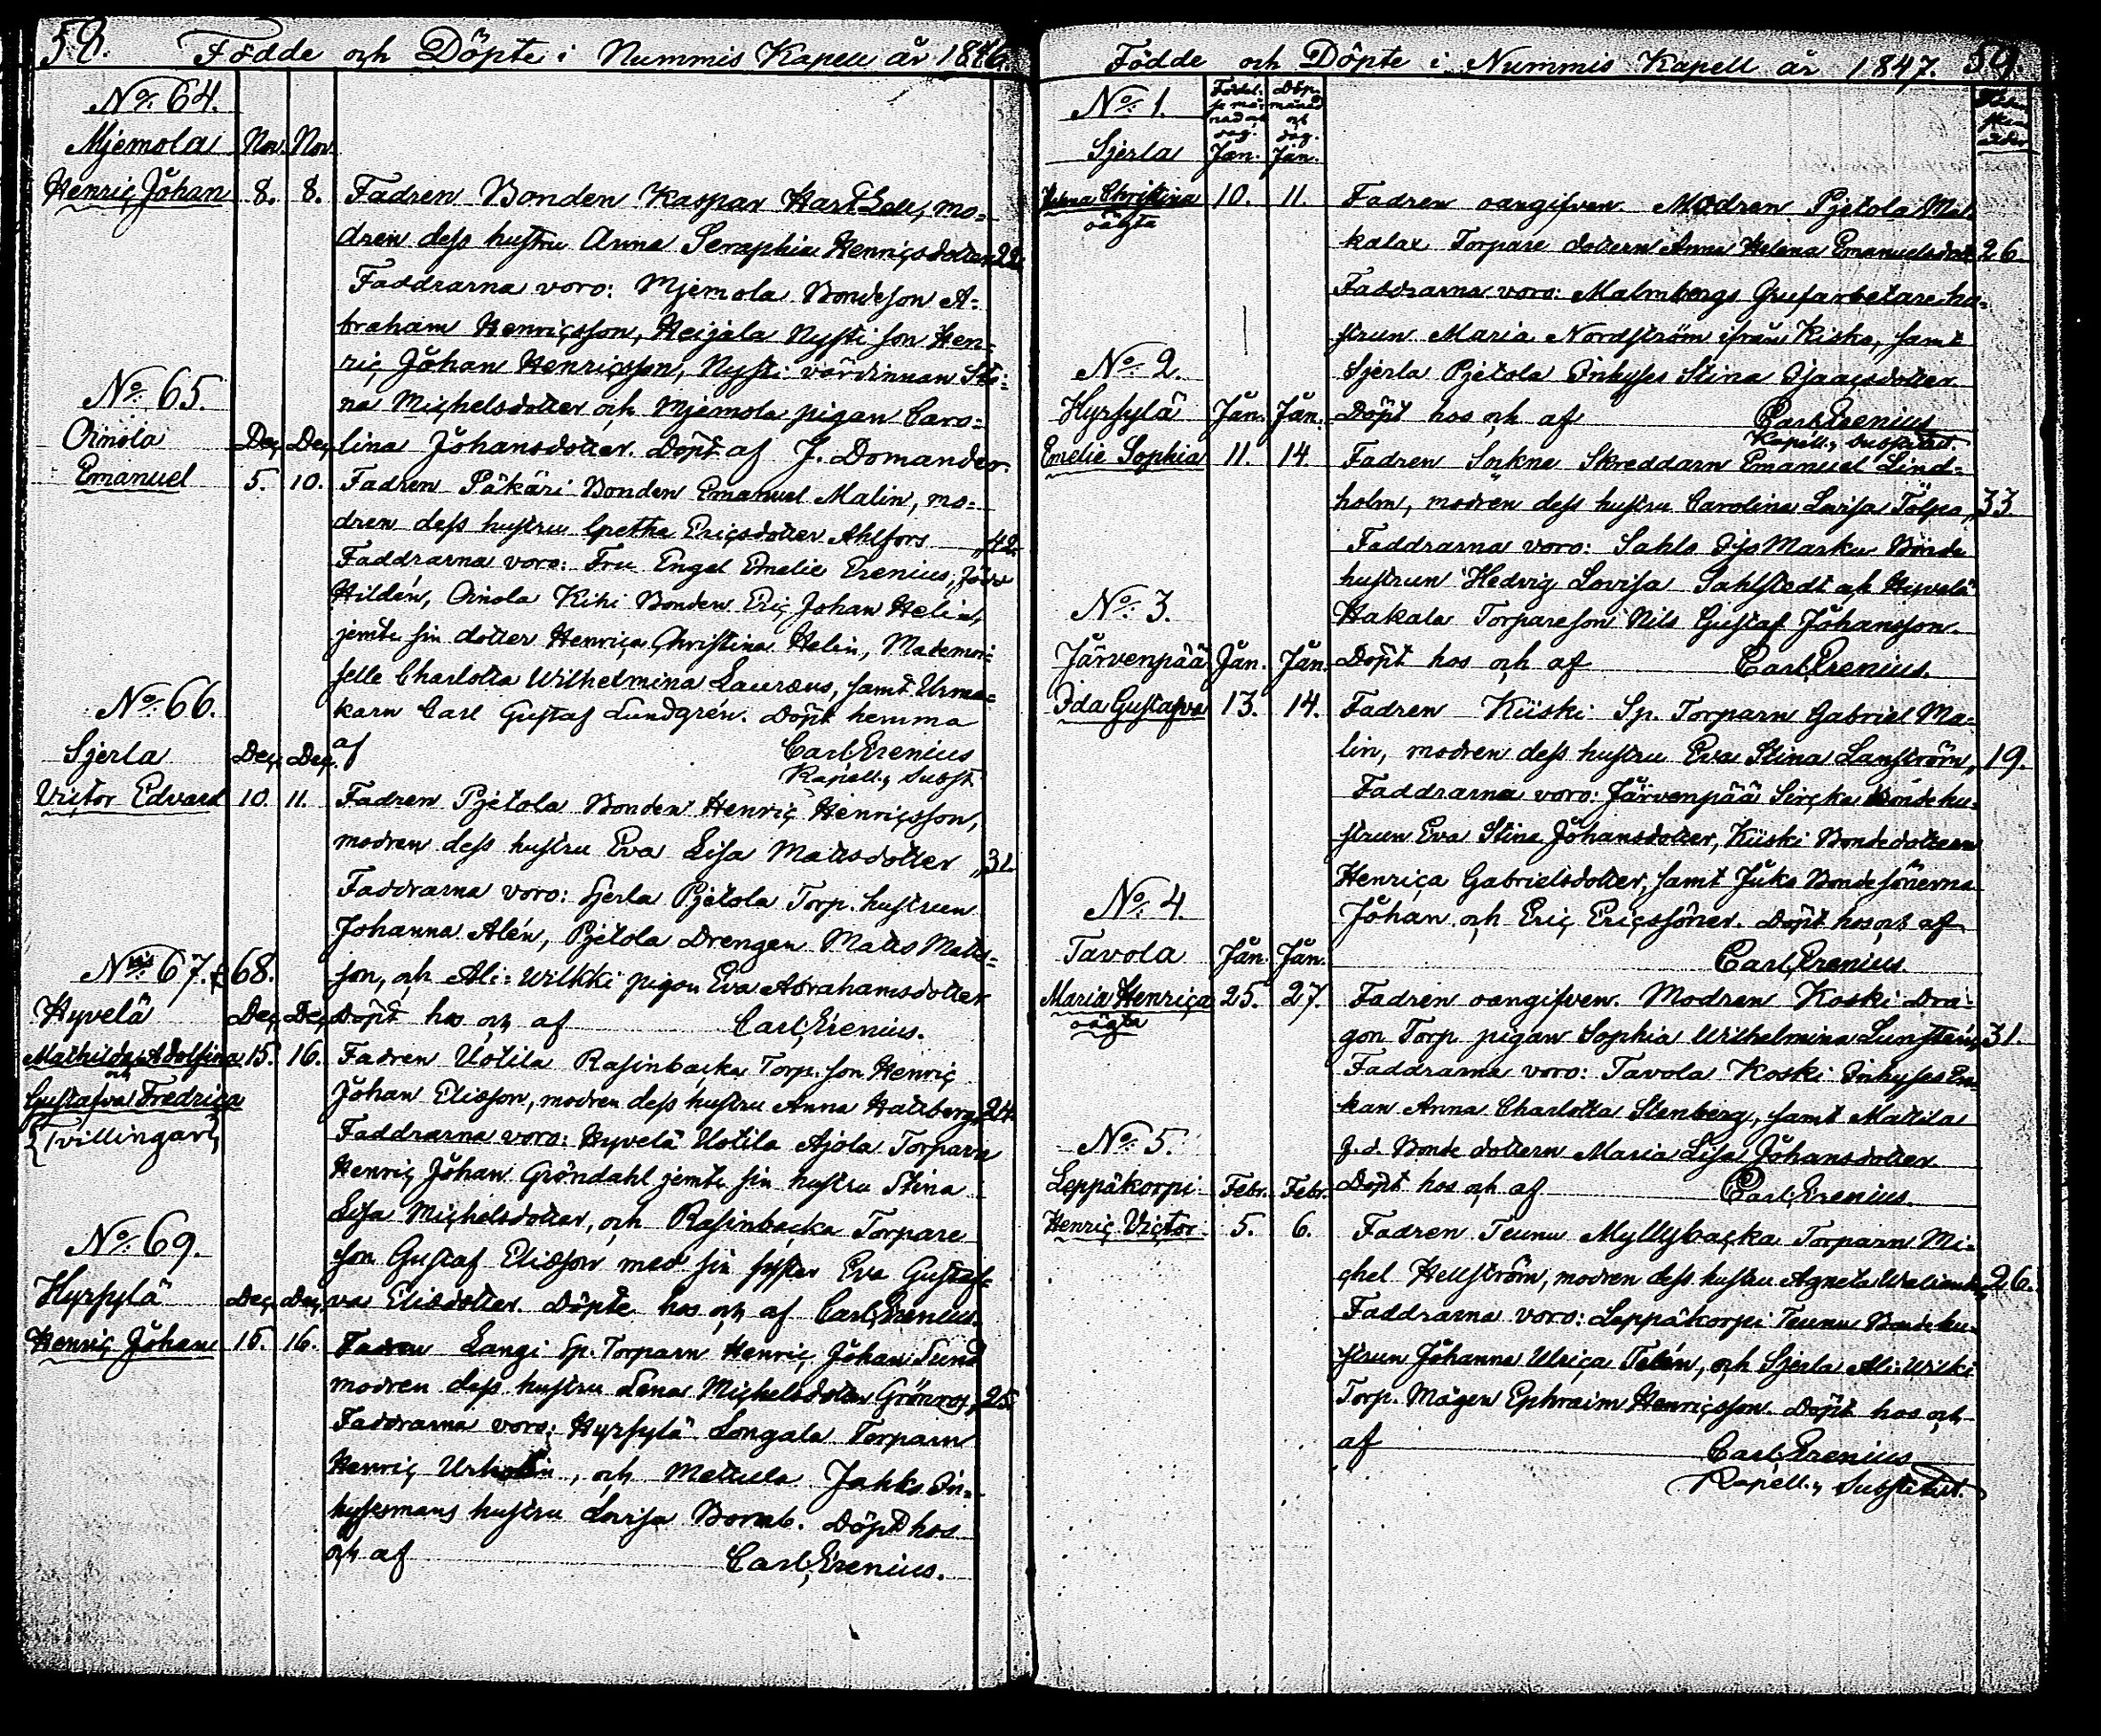 58. Födde och Döpte i Nummis Kapell år 1846.
No. 64.
Mjemola Nov. Nov.
Henriç Johan 8. 8. Fadren Bonden Kaspar Hartzell, mo=
dren dess hustru Anna Seraphia Henriçsdotter 22.
Faddrarna voro: Mjemola Bondeson A=
braham Henriçsson, Heijala Nysti son Hen=
riç Johan Henriçsson, Nysti värdinnan Sti=
na Miçhelsdotter oçh Mjemola pigan Caro=
lina Johansdotter. Döpt af J. Domander.
No. 65.
Oinola Deç. Deç.
Emanuel 5. 10. Fadren Päkäri Bonden Emanuel Malin, mo=
dren dess hustru Gretha Eriçsdotter Ahlfors 42.
Faddrarna voro: Fru Engel Emelie Erenius, född
Hildén, Oinola Kihi Bonden Eriç Johan Helin,
jemte sin dotter Henriça Christina Helin, Mademoi=
selle Charlotta Wilhelmina Lauræus, samt Urma=
karn Carl Gustaf Lundgrén. Döpt hemma
af Carl Erenius
Kapell. Subst.
No. 66.
Sjerla Deç. Deç.
Viçtor Edvard 10. 11. Fadren Pjetola Bonden Henriç Henriçsson,
modren dess hustru Eva Lisa Mattsdotter 31.
Faddrarna voro: Sjerla Pjetola Torp. hustrun
Johanna Alén, Pjetola Drengen Matts Matts=
son, oçh Ali=Wilkki pigan Eva Abrahamsdotter
Döpt hos oçh af Carl Erenius.
No. 67. & 68.
Hyvelä Deç. Deç.
Mathilda Adolfina 15. 16. Fadren Uotila Rasinbaçka Torp. son Henriç
och
Gustafva Fredriça
{Tvillingar}
Johan Eliæson, modren dess hustru Anna Hallberg, 24.
Faddrarna voro: Hyvelä Uotila Ajola Torparn
Henriç Johan Gröndahl jemte sin hustru Stina
Lisa Miçhelsdotter, oçh Rasinbaçka Torpare
son Gustaf Eliæson med sin syster Eva Gustaf=
va Eliædotter. Döpte hos oçh af Carl Erenius.
No. 69.
Hyrsylä Deç. Deç.
Henriç Johan 15. 16. Fadren Langi Sp. Torparn Henriç Johan Lund
modren dess hustru Lena Miçhelsdotter Grönroos, 25.
Faddrarna voro: Hyrsylä Longala Torparn
Henriç , oçh Mettula Jakks In=
hysesmans hustru Lovisa Bomb. Döpt hos
oçh af Carl Erenius.
Födde och Döpte i Nummis Kapell år 1847. 59.
No. 1. Födel=
se må=
nad och
dag. Döp.
månad
och
dag.
Sjerla Jan. Jan.
Christina 10. 11. Fadren oangifven. Modren Pjetola Mat
oägta
kalax Torpare dottern Anna Helena Emanuelsdott. 26.
Faddrarna voro: Malmbergs Grufarbetare hu=
strun Maria Nordström ifrån Kisko, samt
Sjerla Pjetola Inhyses Stina Isaaçsdotter.
Döpt hos och af Carl Erenius
Kapell. Substitut.
No. 2.
Hyrsylä Jan. Jan.
Emelie Sophia 11. 14. Fadren Sokne Skreddarn Emanuel Lind=
holm, modren dess hustru Carolina Lovisa Tölpo, 33.
Faddrarna voro: Sahls Iso Marku Bonde
hustrun Hedvig Lovisa Sahlstedt och Hyvelä
Hakala Torpareson Nils Gustaf Johansson.
Döpt hos och af Carl Erenius.
No. 3.
Järvenpää Jan. Jan.
Ida Gustafva 13. 14. Fadren Kiiski Sp. Torparn Gabriel Ma=
lin, modren dess hustru Eva Stina Lanström, 19.
Faddrarna voro: Järvenpää Sirçka Bonde hu=
strun Eva Stina Johansdotter, Kiiski Bondedottern
Henriça Gabrielsdotter, samt Juko Bondesönerna
Johan och Eriç Eriçssöner. Döpt hos och af
Carl Erenius.
No. 4.
Tavola Jan. Jan.
Maria Henriça 25. 27. Fadren oangifven. Modren Koski Dra=
oägta
gon Torp pigan Sophia Wilhelmina Lunstén, 31.
Faddrarna voro: Tavola Koski Inhyses En=
kan Anna Charlotta Stenberg, samt Mattila
f.d. Bonde dottern Maria Lisa Johansdotter.
Döpt hos och af Carl Erenius.
No. 5.
Leppäkorpi Febr. Febr.
Henriç Viçtor 5. 6. Fadren Teunu Myllybaçka Torparn Mi=
çhel Hellström, modren dess hustru Agneta 26.
Faddrarna voro: Leppäkorpi Teunu Bonde hu=
strun Johanna Ulriça Telén, och Sjerla Ali=Wilki
Torp. Mågen Ephraim Henriçsson. Döpt hos och
af Carl Erenius
Kapell. Substitut.